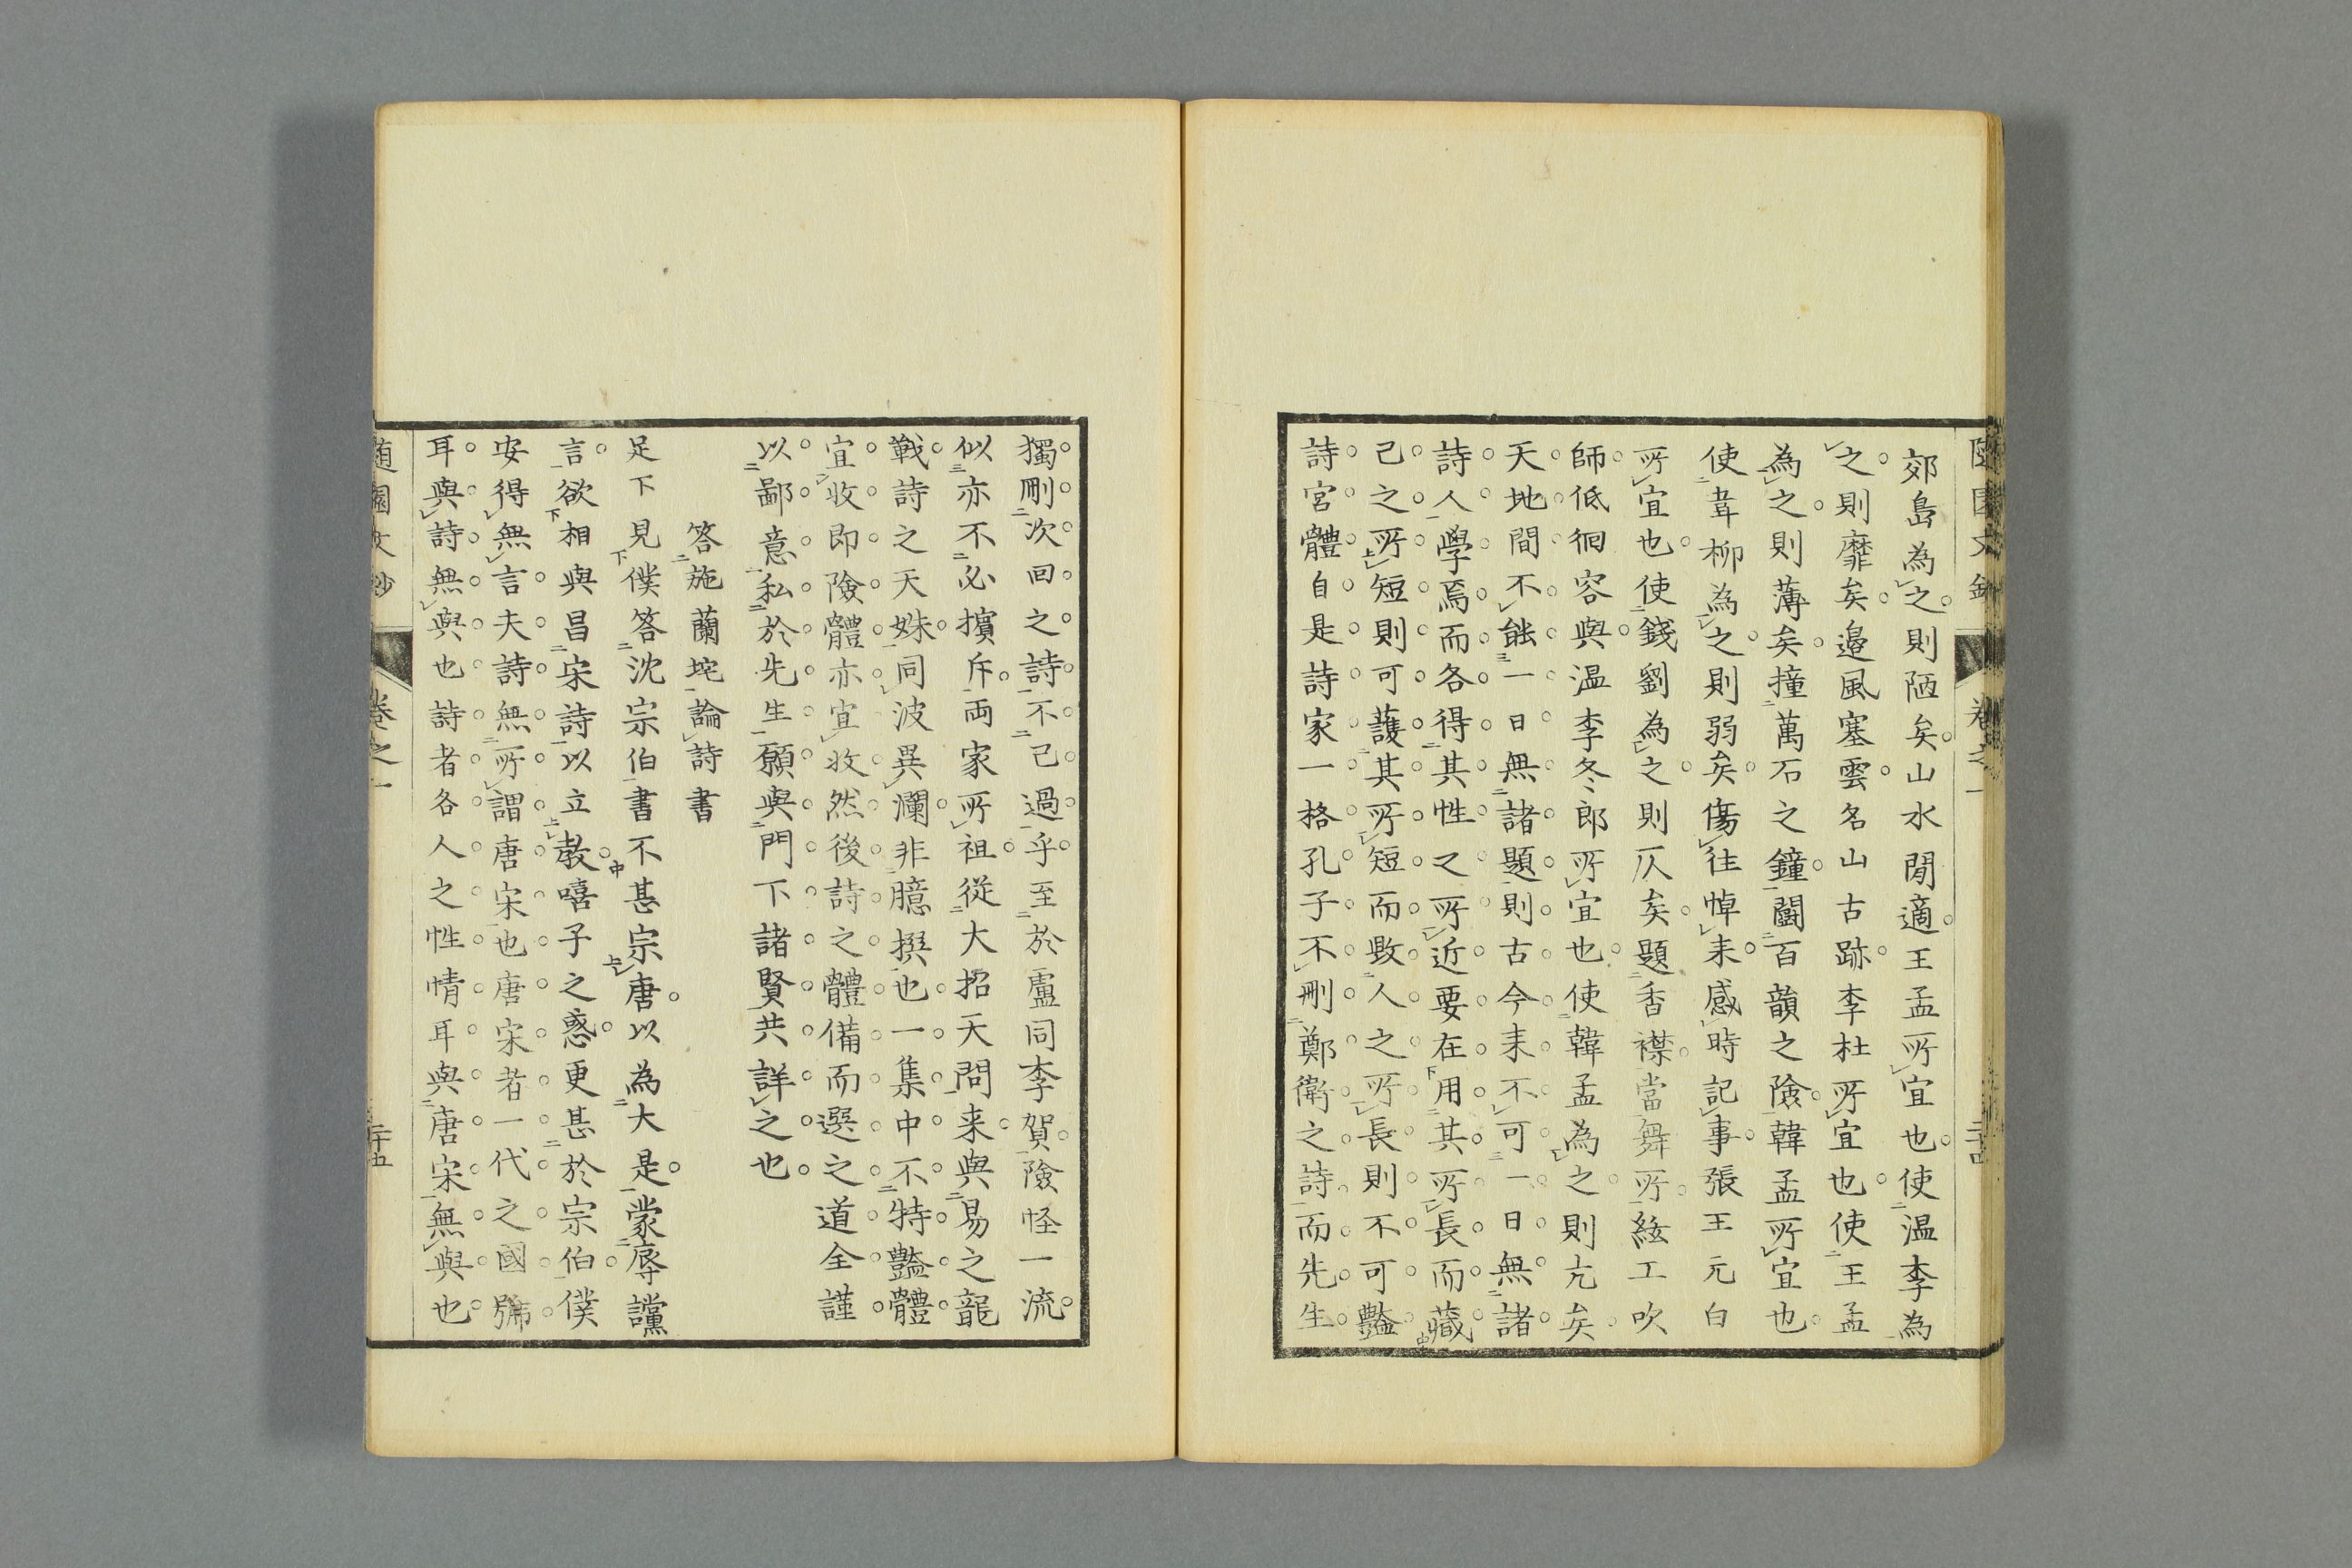 郊島為之則陋矣山水閒適王孟所宜也使温李為
之則靡矣邉風塞雲名山古跡李杜所宜也使王孟
為之則薄矣撞萬石之鐘鬭百韻之險韓孟所宜也
使韋柳為之則弱矣傷往悼来感時記事張王元白
所宜也使錢劉為之則仄矣題香襟當舞所絃工吹
師低徊容與温李冬郎所宜也使韓孟為之則亢矣
天地間不能一日無諸題則古今来不可一日無諸
詩人學焉而各得其性之所近要在用其所長而藏
己之所短則可護其所短而毀人之所長則不可豔
詩宮體自是詩家一格孔子不刪鄭衛之詩而先生
獨刪次回之詩不已過乎至於盧同李賀險怪一流
似亦不必擯斥両家所祖從大招天問来與易之龍
戰詩之天妹同波異瀾非臆撰也一集中不特豔體
宜收即險體亦宜收然後詩之體備而選之道全謹
以鄙意私於先生願與門下諸賢共詳之也
答施蘭垞論詩書
足下見僕答沈宗伯書不甚宗唐以為大是蒙辱讜
言欲相與昌宋詩以立教嘻子之惑更甚於宗伯僕
安得無言夫詩無所謂唐宋也唐宋者一代之國號
耳與詩無與也詩者各人之性情耳與唐宋無與也
隨園文鈔 卷之一 二十五